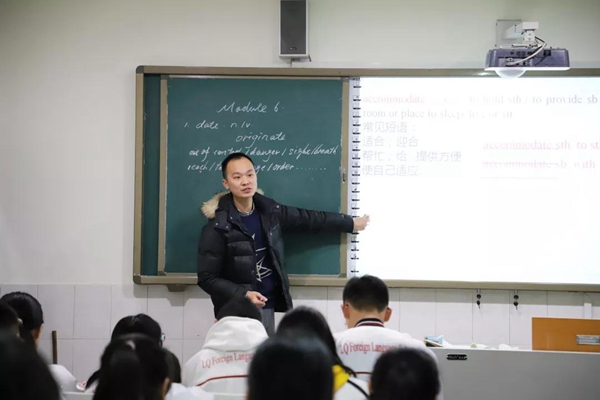 Module 6
1. date n.\v.
originate
out of control/danger/sight/breath
reach/order ........
accommodate hold sth; to provide sb
room or place to sleep, live or sit
常见短语：
适合，迎合 accommodate sth to
帮忙；给…提供方便 accommodate sb with
使自己适应
LQ Foreign Language
LQ Foreign Language